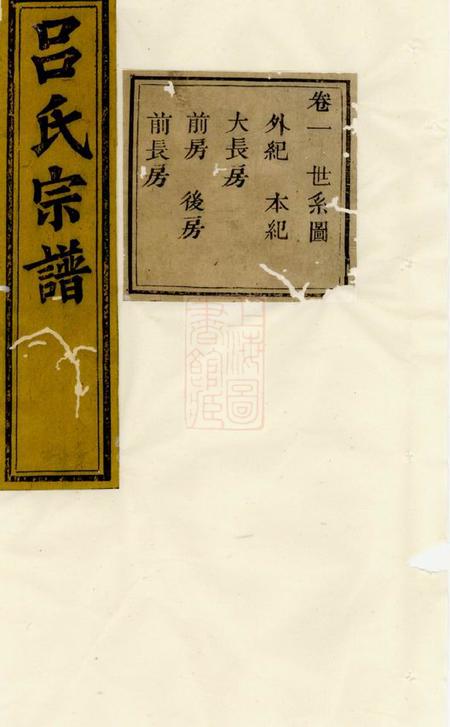 呂氏宗譜
卷一 世系圖
外紀 本紀
大長房
前房 後房
前長房
上海圖
書館藏